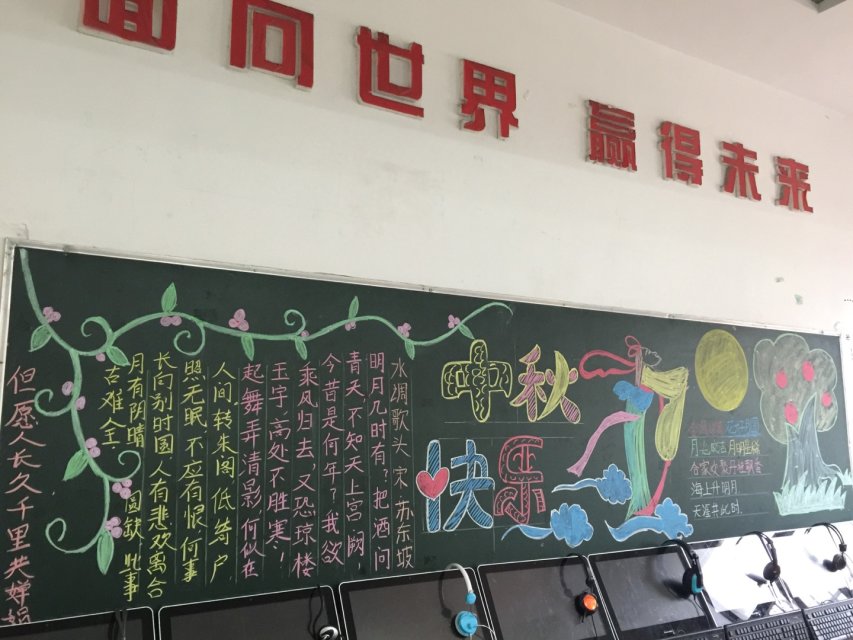 面向世界 赢得未来
水调歌头 宋·苏东坡
明月几时有?把酒问
青天 不知天上宫阙,
今昔是何年?我欲
乘风归去,又恐琼楼
玉宇,高处不胜寒,
起舞弄清影,何似在
人间.转朱阁,低绮户,
照无眠 不应有恨,何事
长向别时圆 人有悲欢离合
月有阴晴 圆缺 此事
古难全
但愿人长久千里共婵娟
中秋
快乐
合家欢聚丹桂飘香
海上升明月
天涯共此时.